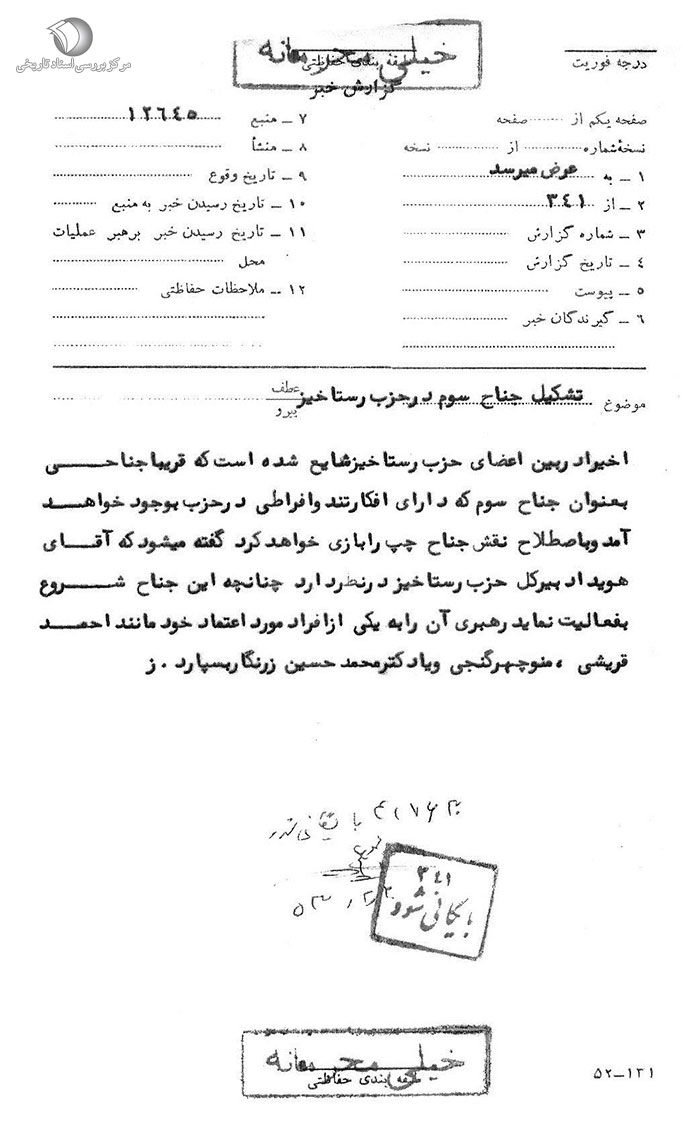 مرکز بررسی اسناد تاریخی
خیلی محرمانه
طبقه بندی حفاظتی
گزارش خبر
درجه فوریت
صفحه یکم از صفحه
نسخه شماره از نسخه
۱ – به عرض میرسد
۲ – از ۳۴۱
۳ – شماره گزارش
۴ – تاریخ گزارش
۵ – پیوست
۶ – گیرندگان خبر
۷ – منبع ۱۲۶۴۵
۸ – منشأ
۹ – تاریخ وقوع
۱۰ – تاریخ رسیدن خبر به منبع
۱۱ – تاریخ رسیدن خبر برهبر عملیات
محل
۱۲ – ملاحظات حفاظتی
موضوع تشکیل جناح سوم در حزب رستاخیز
عطف
پیرو
اخیرا در بین اعضای حزب رستاخیز شایع شده است که قریبا جناحی
بعنوان جناح سوم که دارای افکار تند و افراطی در حزب بوجود خواهد
آمد و باصطلاح نقش جناح چپ را بازی خواهد کرد گفته میشود که آقای
هویدا دبیرکل حزب رستاخیز در نظر دارد چنانچه این جناح شروع
بفعالیت نماید رهبری آن را به یکی از افراد مورد اعتماد خود مانند احمد
قریشی ، منوچهر گنجی و یا دکتر محمد حسین زرنگار بسپارد . ز
۳۴۱
بایگانی شود
خیلی محرمانه
طبقه بندی حفاظتی
۵۲–۱۳۱